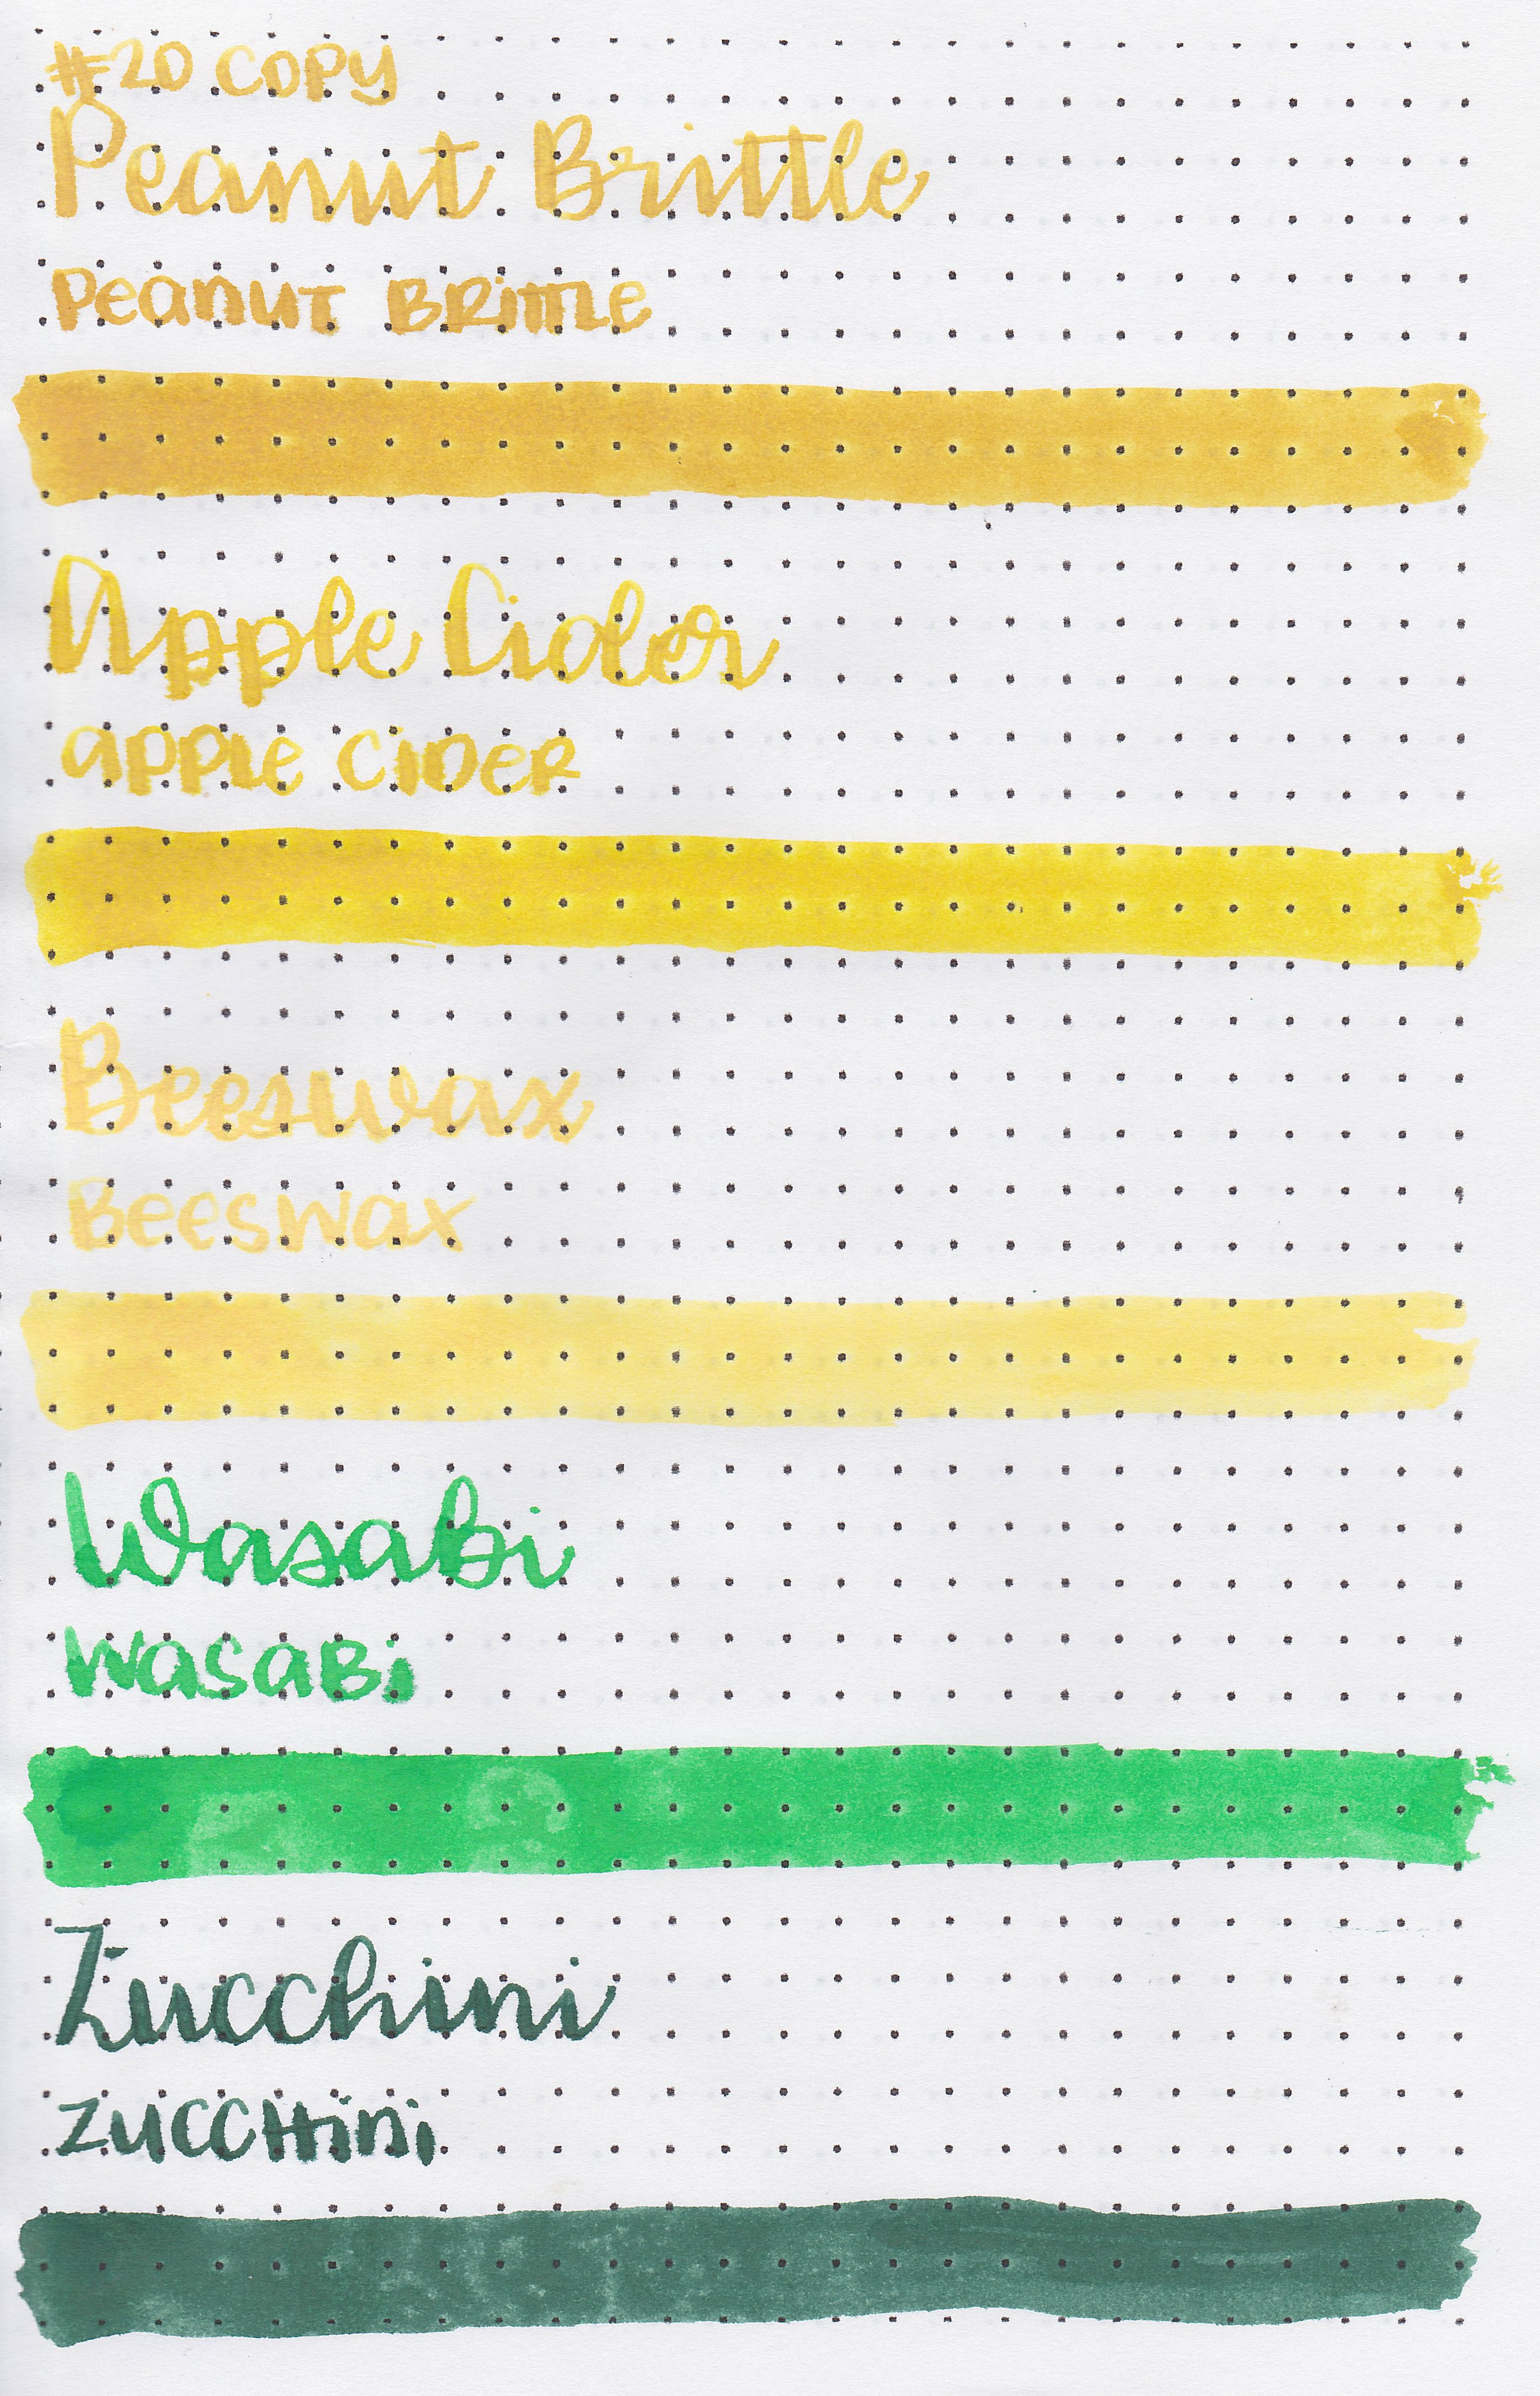 #20 COPY
Peanut Brittle
Peanut Brittle
Apple Cider
apple cider
Beeswax
Beeswax
Wasabi
wasabi
Zucchini
zucchini